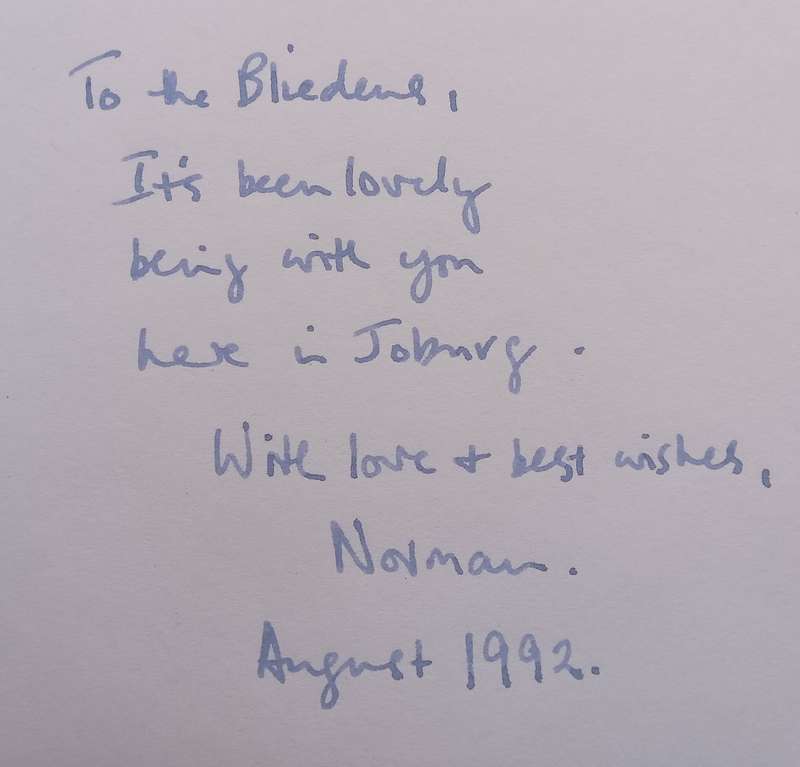 To the Bliedens,
It's been lovely
being with you
here in Joburg.
With love + best wishes,
Norman.
August 1992.